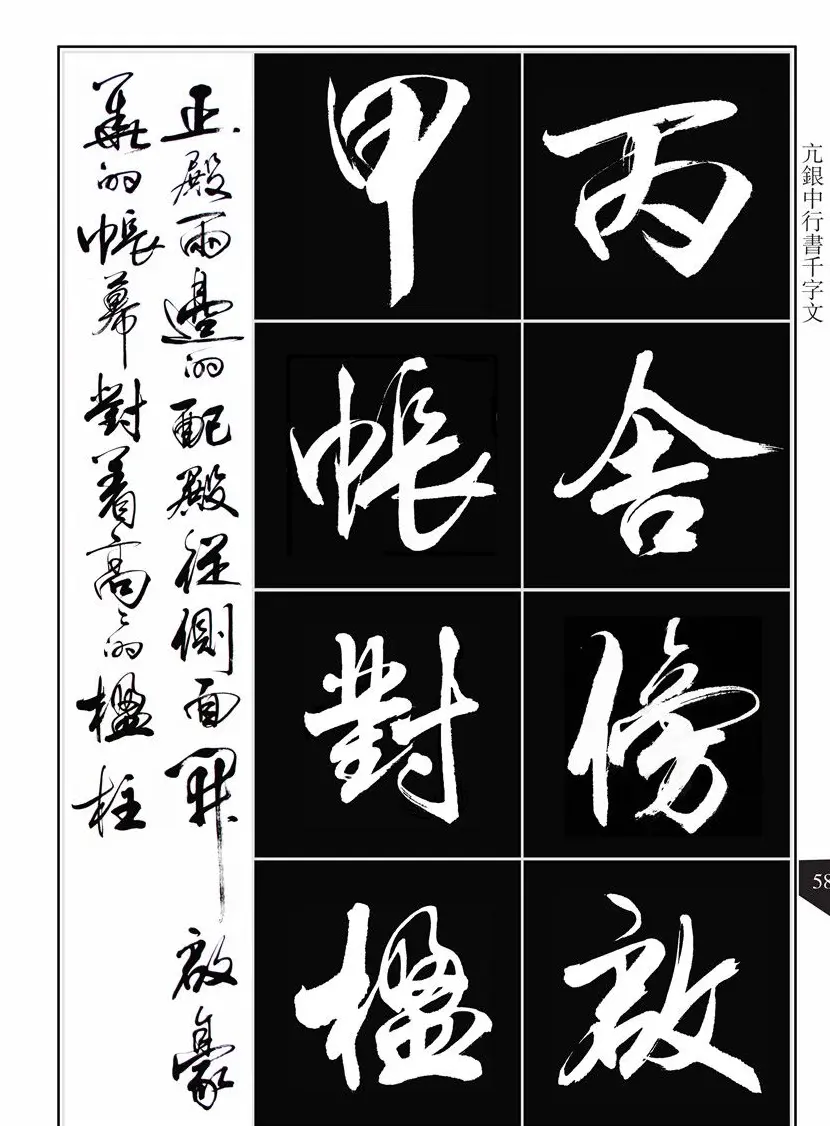 亢銀中行書千字文
丙舍傍啟
甲帳對楹
正殿兩邊的配殿從側面開啟豪
華的帳幕對着高高的楹柱
58